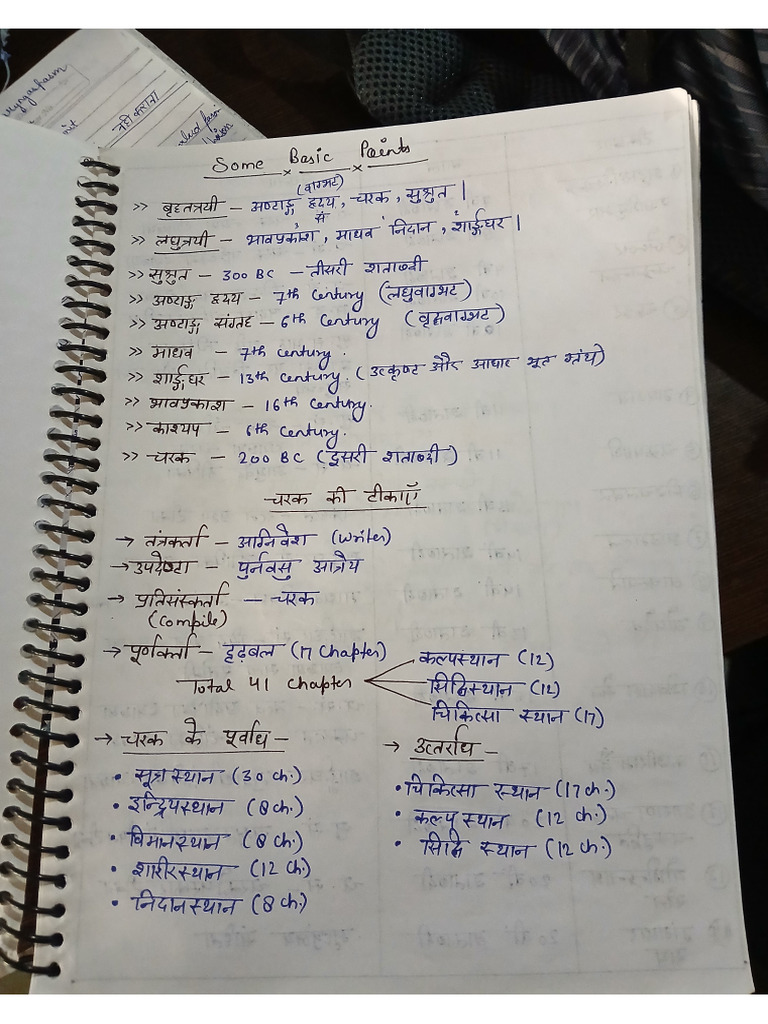 नही कराना
Some Basic Points
(वाग्भट)
>> बृहतत्रयी – अष्टाङ्ग हृदय, चरक, सुश्रुत |
सं
>> लघुत्रयी – भावप्रकाश, माधव निदान, शार्ङ्गधर |
>> सुश्रुत – 300 BC – तीसरी शताब्दी
>> अष्टाङ्ग हृदय – 7th Century (लघुवाग्भट)
>> अष्टाङ्ग संग्रह – 6th Century (वृद्धवाग्भट)
>> माधव – 7th Century.
>> शार्ङ्गधर – 13th Century. (उत्कृष्ट और आधार भूत ग्रंथ)
>> भावप्रकाश – 16th Century.
>> काश्यप – 6th Century.
>> चरक – 200 BC (दूसरी शताब्दी)
चरक की टीकाएँ
→ तंत्रकर्ता – अग्निवेश (Writer)
→ उपदेष्टा – पुर्नवसु आत्रेय
→ प्रतिसंस्कर्ता – चरक
(Compile)
→ पूर्णकर्ता – दृढ़बल (17 Chapter)
Total 41 Chapter
कल्पस्थान (12)
सिद्धिस्थान (12)
चिकित्सा स्थान (17)
→ चरक के पूर्वाध –
• सूत्र स्थान (30 ch.)
• इन्द्रियस्थान (8 ch.)
• विमानस्थान (8 ch.)
• शारीरस्थान (12 ch.)
• निदानस्थान (8 ch.)
→ उत्तराध –
• चिकित्सा स्थान (17 ch.)
• कल्प स्थान (12 ch.)
• सिद्धि स्थान (12 ch.)